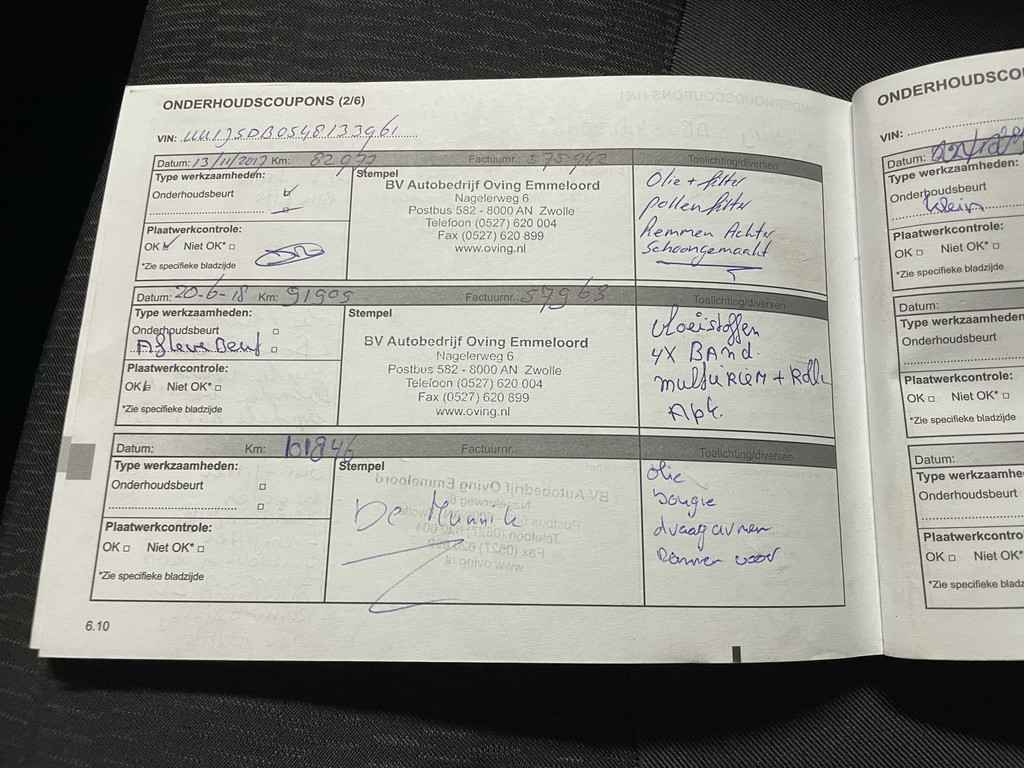 ONDERHOUDSCOUPONS (2/6)
VIN: UU1JSDB0548133961
Datum: 13/11/2017 Km: 82977 Factuurnr. 575942 Toelichting/diversen
Type werkzaamheden:
Onderhoudsbeurt
Plaatwerkcontrole:
OK Niet OK*
*Zie specifieke bladzijde
Stempel
BV Autobedrijf Oving Emmeloord
Nagelerweg 6
Postbus 582 - 8000 AN Zwolle
Telefoon (0527) 620 004
Fax (0527) 620 899
www.oving.nl
Olie + filter
pollenfilter
Remmen Achter
Schoongemaakt
Datum: 20-6-18 Km: 91909 Factuurnr. 57963 Toelichting/diversen
Type werkzaamheden:
Onderhoudsbeurt
Aflever Beurt
Plaatwerkcontrole:
OK Niet OK*
*Zie specifieke bladzijde
Stempel
BV Autobedrijf Oving Emmeloord
Nagelerweg 6
Postbus 582 - 8000 AN Zwolle
Telefoon (0527) 620 004
Fax (0527) 620 899
www.oving.nl
vloeistoffen
4X BAND.
multiRIEM + Rolle
Apk.
Datum: Km: 101846 Factuurnr. Toelichting/diversen
Type werkzaamheden:
Onderhoudsbeurt
Plaatwerkcontrole:
OK Niet OK*
*Zie specifieke bladzijde
Stempel
De Munnik
olie
bougie
draagarmen
Remmen voor
6.10
ONDERHOUDSCOU
VIN:
Datum:
Type werkzaamheden:
Onderhoudsbeurt
klein
Plaatwerkcontrole:
OK Niet OK*
*Zie specifieke bladzijde
Datum:
Type werkzaamheden
Onderhoudsbeurt
Plaatwerkcontrole:
OK Niet OK*
*Zie specifieke bladzijde
Datum:
Type werkzaamhe
Onderhoudsbeurt
Plaatwerkcontro
OK Niet OK*
*Zie specifieke bladz